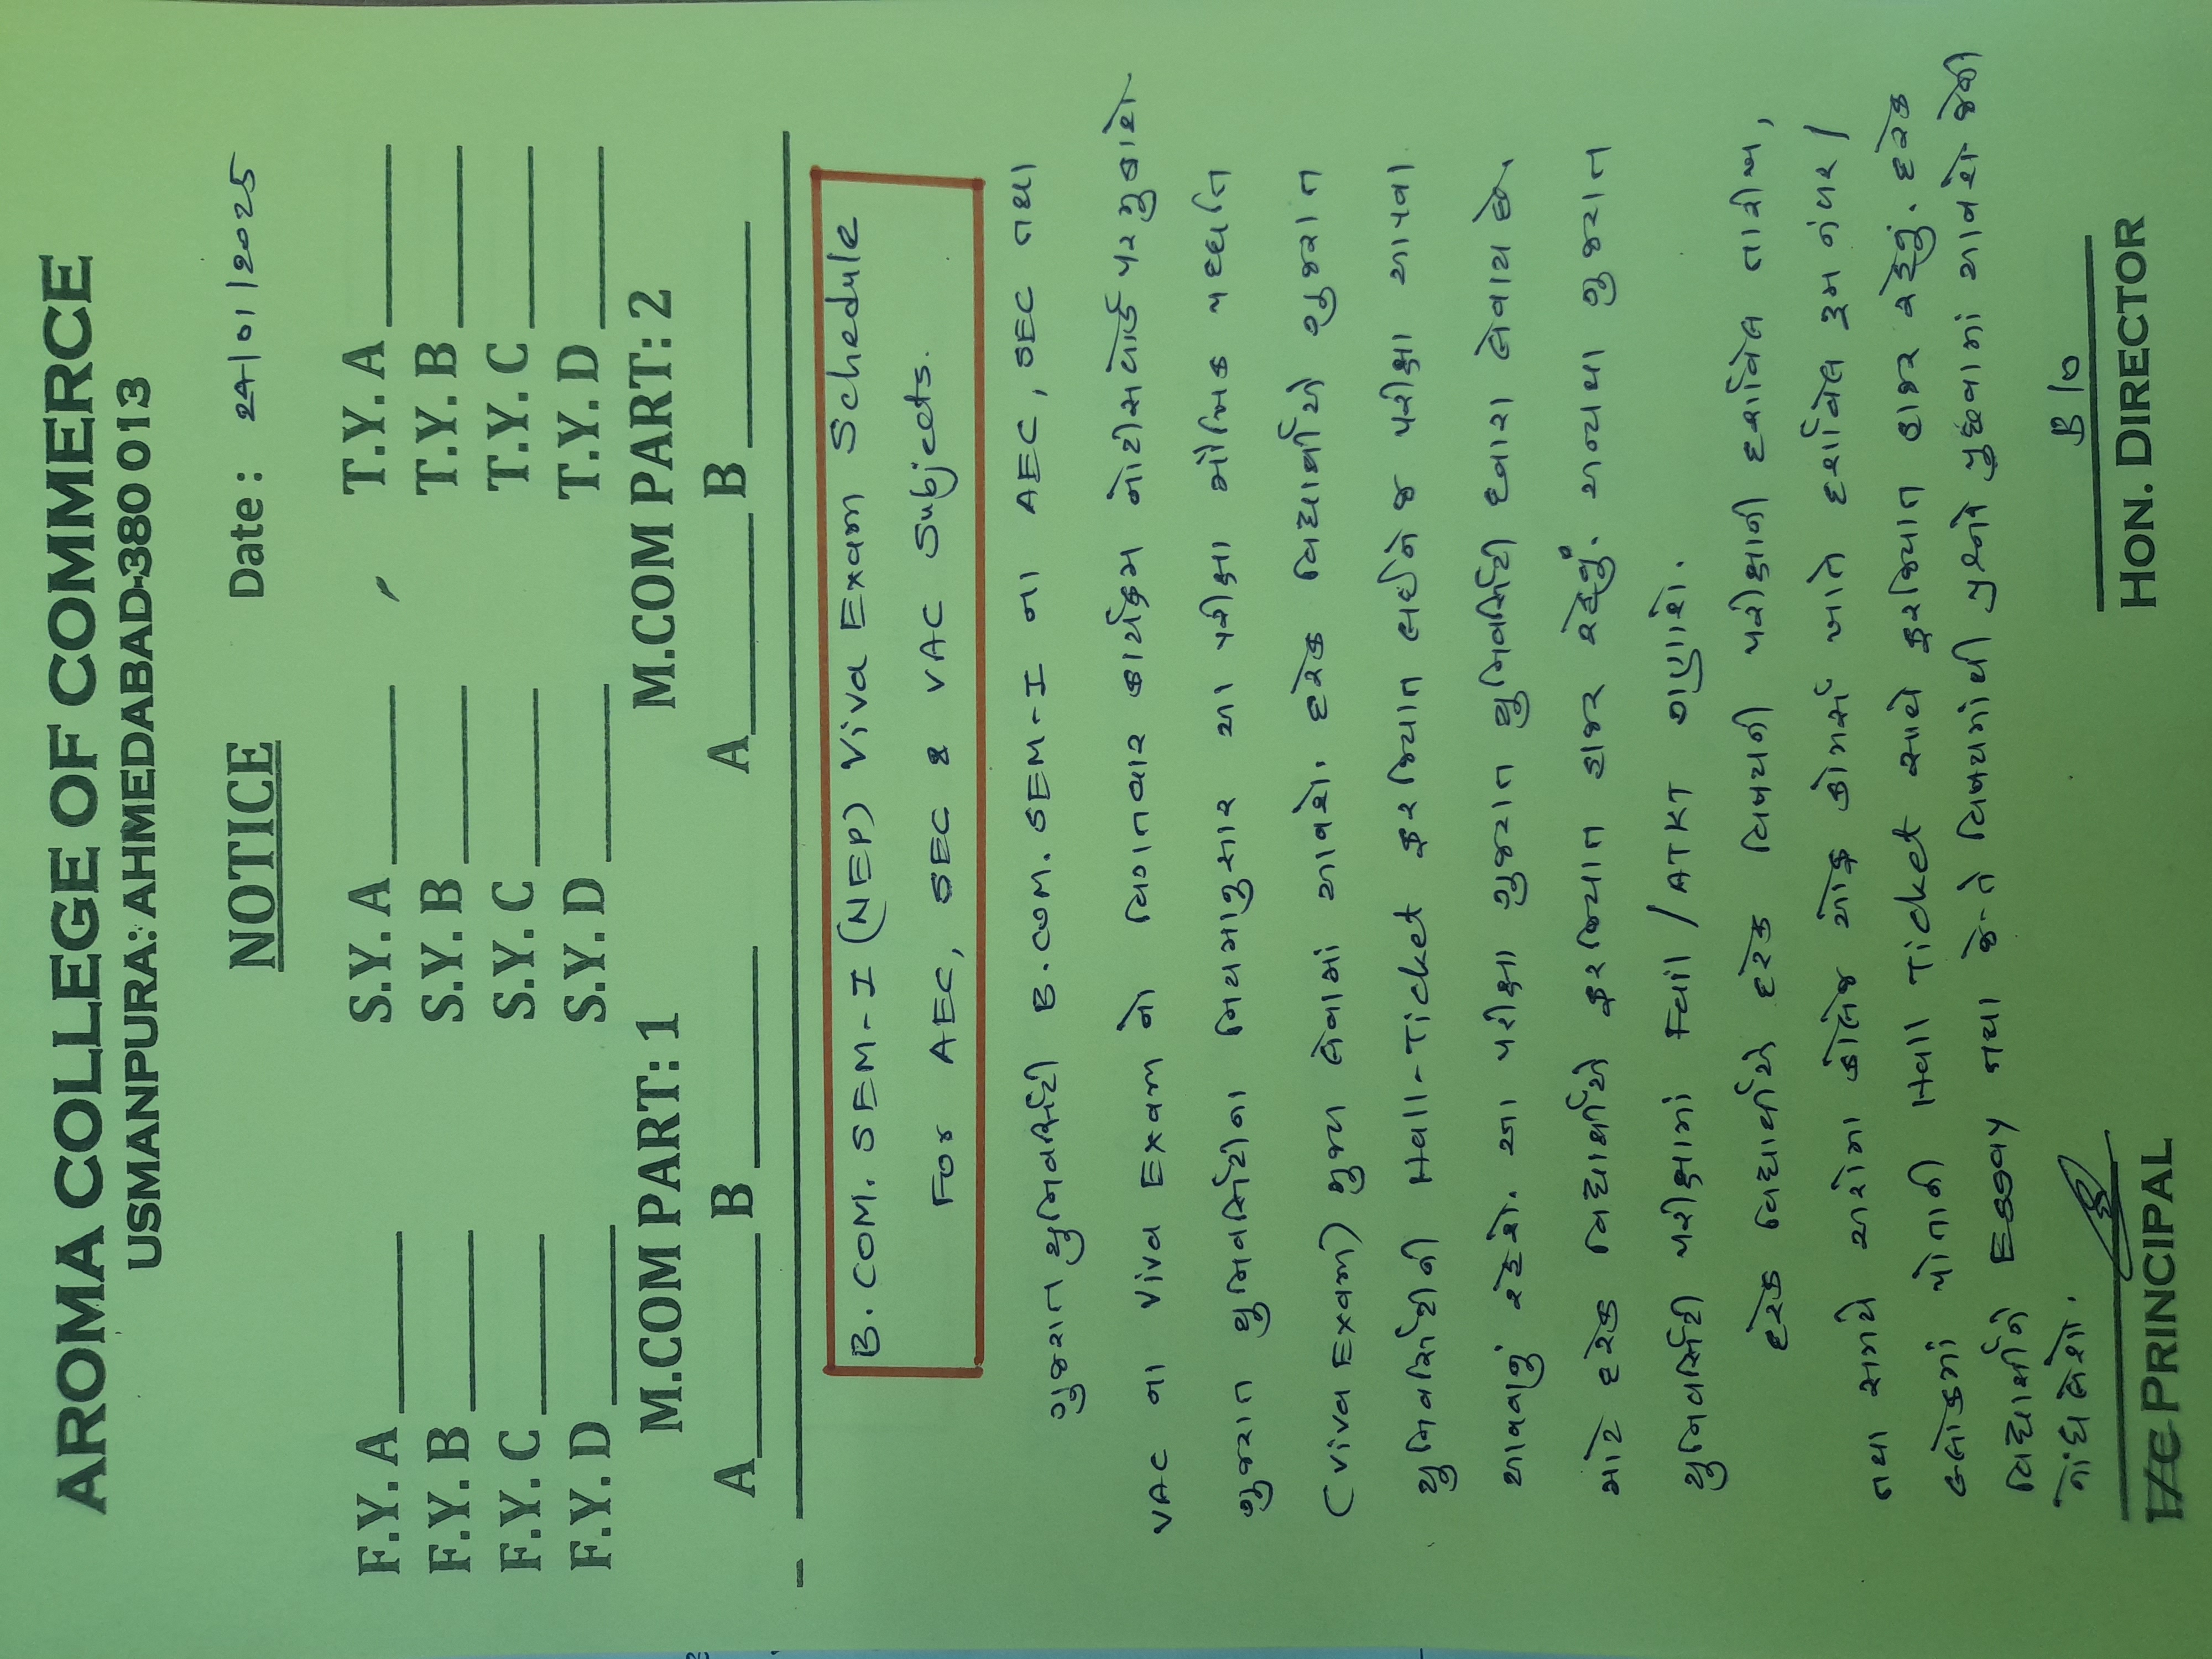 AROMA COLLEGE OF COMMERCE
USMANPURA: AHMEDABAD-380 013
NOTICE Date: 24/01/2025
F.Y. A S.Y. A T.Y. A
F.Y. B S.Y. B T.Y. B
F.Y. C S.Y. C T.Y. C
F.Y. D S.Y. D T.Y. D
M.COM PART: 1 M.COM PART: 2
A B A B
B.COM. SEM-I (NEP) Viva Exam Schedule
For AEC, SEC & VAC Subjects.
ગુજરાત યુનિવર્સિટી B.COM. SEM-I ના AEC, SEC તથા
VAC ના Viva Exam નો વિગતવાર કાર્યક્રમ નોટીસબોર્ડ પર મુકાશે.
ગુજરાત યુનિવર્સિટીના નિયમાનુસાર આ પરીક્ષા મૌખિક પધ્ધતિ
(Viva Exam) મુજબ લેવામાં આવશે. દરેક વિદ્યાર્થીએ ગુજરાત
યુનિવર્સિટીની Hall-Ticket ફરજિયાત લઈને જ પરીક્ષા આપવા
આવવાનું રહેશે. આ પરીક્ષા ગુજરાત યુનિવર્સિટી દ્વારા લેવાય છે.
માટે દરેક વિદ્યાર્થીએ ફરજિયાત હાજર રહેવું. અન્યથા ગુજરાત
યુનિવર્સિટી પરીક્ષામાં Fail/ATKT ગણાશે.
દરેક વિદ્યાર્થીએ દરેક વિષયની પરીક્ષાની દર્શાવેલ તારીખ,
તથા સમયે અરોમા કોલેજ ઓફ કોમર્સ ખાતે દર્શાવેલ રૂમ નંબર/
બ્લોકમાં પોતાની Hall Ticket સાથે ફરજિયાત હાજર રહેવું. દરેક
વિદ્યાર્થીને Essay તથા જે-તે વિષયમાંથી પ્રશ્નો પુછવામાં આવશે જેની
નોંધ લેશો.
I/C PRINCIPAL HON. DIRECTOR